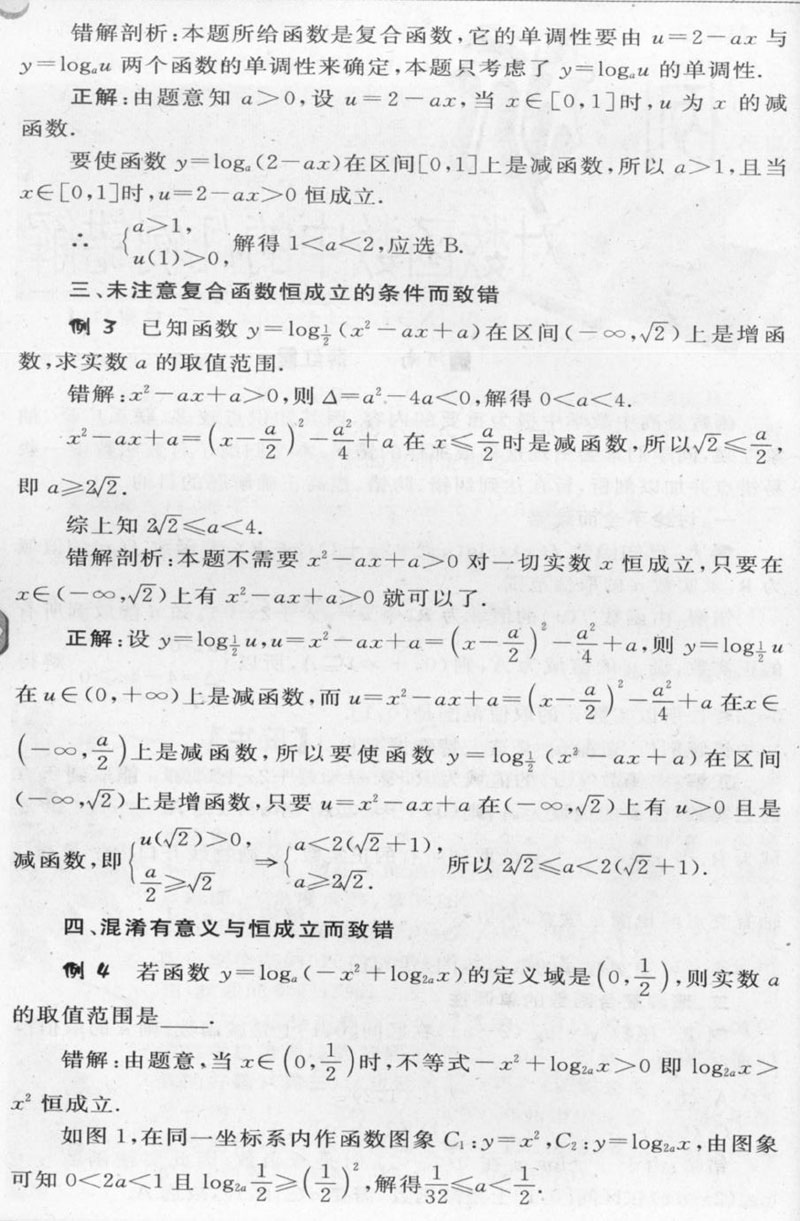 错解剖析:本题所给函数是复合函数,它的单调性要由 u=2-ax 与
y=logₐu 两个函数的单调性来确定,本题只考虑了 y=logₐu 的单调性.
正解:由题意知 a>0,设 u=2-ax,当 x∈[0,1]时,u 为 x 的减
函数.
要使函数 y=logₐ(2-ax)在区间[0,1]上是减函数,所以 a>1,且当
x∈[0,1]时,u=2-ax>0 恒成立.
∴ {a>1, u(1)>0, 解得 1<a<2,应选 B.
三、未注意复合函数恒成立的条件而致错
例 3 已知函数 y=log_{1/2}(x²-ax+a)在区间(-∞,√2)上是增函
数,求实数 a 的取值范围.
错解:x²-ax+a>0,则 Δ=a²-4a<0,解得 0<a<4.
x²-ax+a=(x-a/2)²-a²/4+a 在 x≤a/2 时是减函数,所以√2≤a/2,
即 a≥2√2.
综上知 2√2≤a<4.
错解剖析:本题不需要 x²-ax+a>0 对一切实数 x 恒成立,只要在
x∈(-∞,√2)上有 x²-ax+a>0 就可以了.
正解:设 y=log_{1/2}u,u=x²-ax+a=(x-a/2)²-a²/4+a,则 y=log_{1/2}u
在 u∈(0,+∞)上是减函数,而 u=x²-ax+a=(x-a/2)²-a²/4+a 在x∈
(-∞,a/2)上是减函数,所以要使函数 y=log_{1/2}(x²-ax+a)在区间
(-∞,√2)上是增函数,只要 u=x²-ax+a 在(-∞,√2)上有 u>0 且是
减函数,即{u(√2)>0, a/2≥√2 ⇒{a<2(√2+1), a≥2√2. 所以 2√2≤a<2(√2+1).
四、混淆有意义与恒成立而致错
例 4 若函数 y=logₐ(-x²+log₂ₐx)的定义域是(0,1/2),则实数 a
的取值范围是____.
错解:由题意,当 x∈(0,1/2)时,不等式-x²+log₂ₐx>0 即 log₂ₐx>
x² 恒成立.
如图 1,在同一坐标系内作函数图象 C₁:y=x²,C₂:y=log₂ₐx,由图象
可知 0<2a<1 且 log₂ₐ1/2≥(1/2)²,解得1/32≤a<1/2.